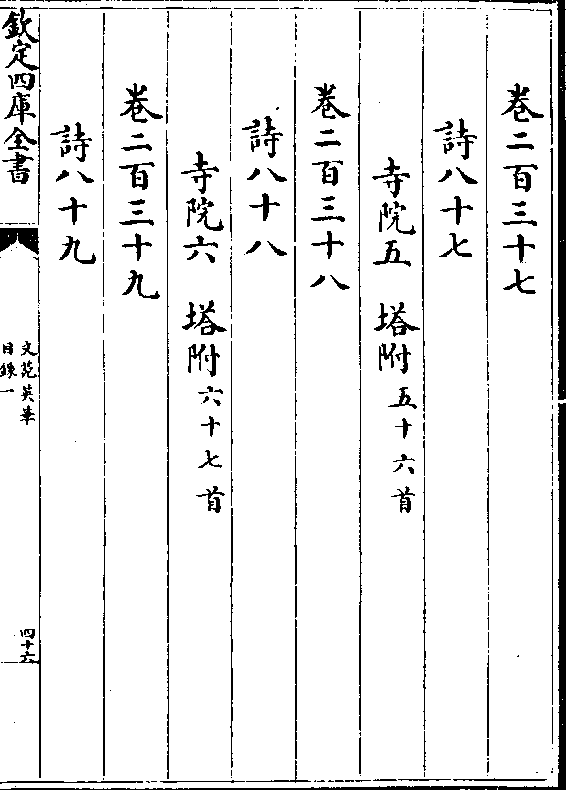 卷二百三十七
詩八十七
寺院五 塔附 五十六首
卷二百三十八
詩八十八
寺院六 塔附 六十七首
卷二百三十九
詩八十九
欽定四庫全書
文苑英華
目錄一
四十六